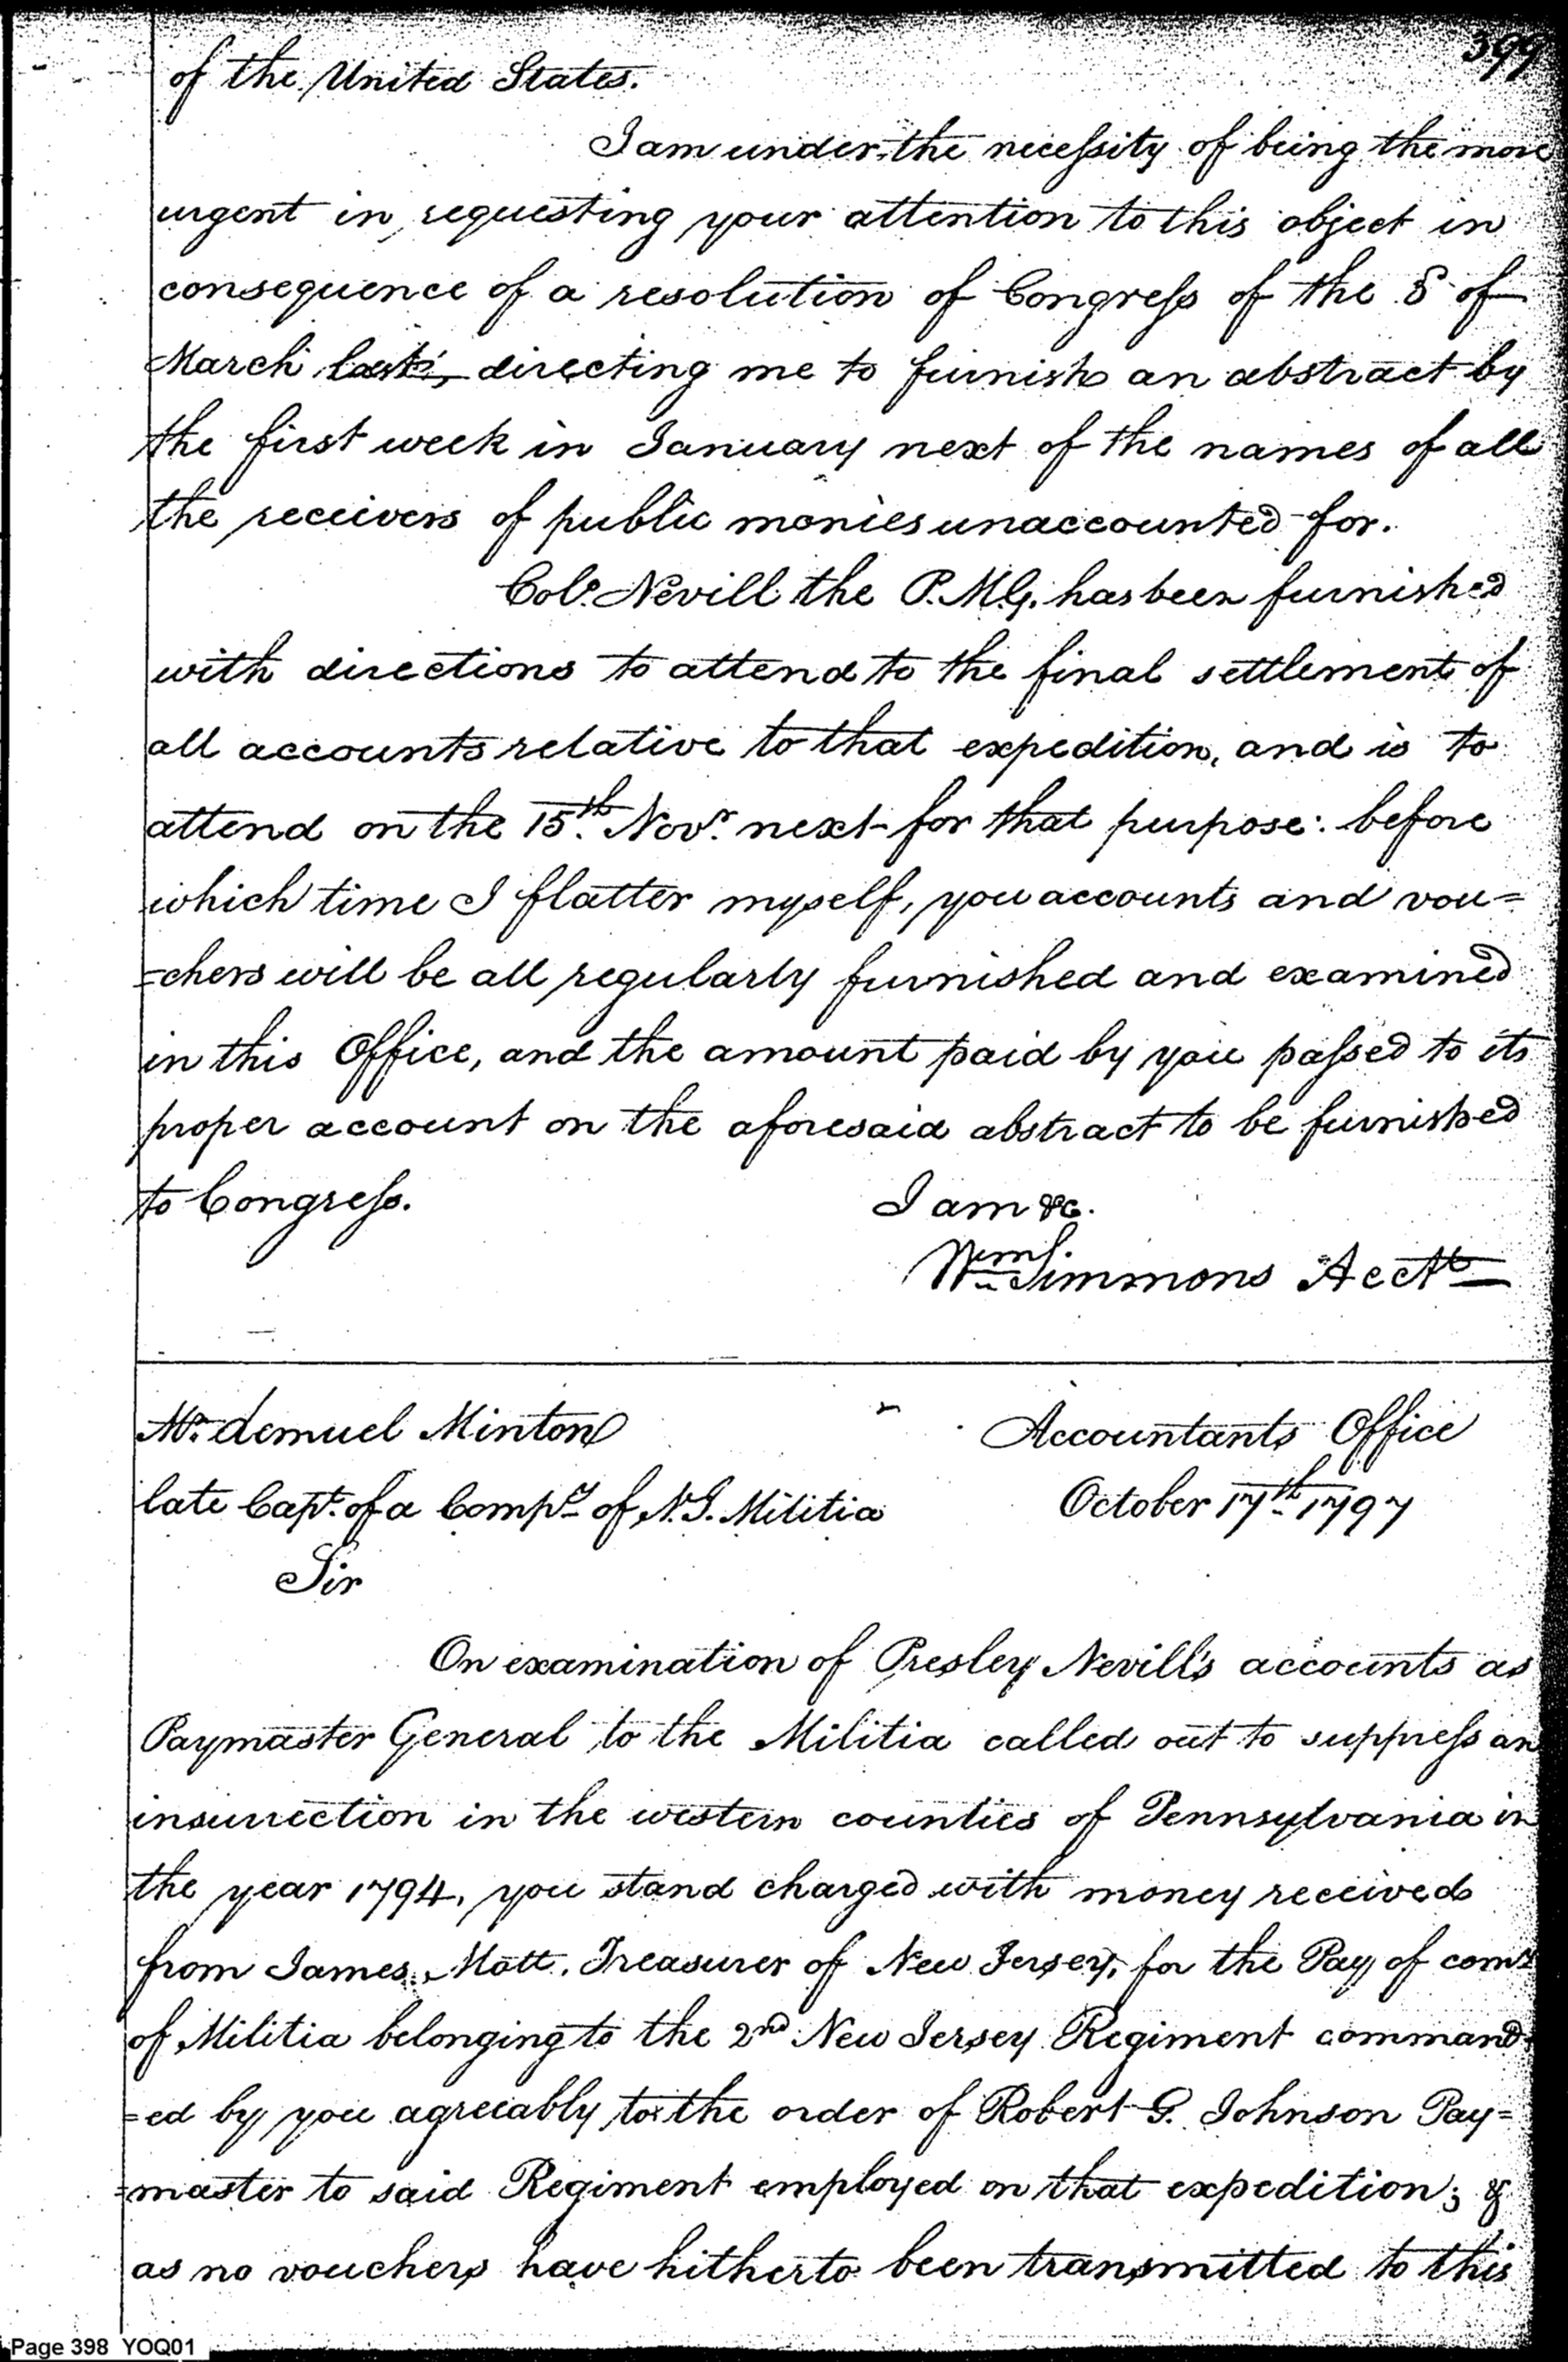 399
of the United States.
I am under the necessity of being the more
urgent in requesting your attention to this object in
consequence of a resolution of Congress of the 8 of
March last, directing me to furnish an abstract by
the first week in January next of the names of all
the receivers of public monies unaccounted for.
Colo. Nevill the P.M.G. has been furnished
with directions to attend to the final settlement of
all accounts relative to that expedition, and is to
attend on the 15th Novr. next for that purpose: before
which time I flatter myself, you accounts and vou=
=chers will be all regularly furnished and examined
in this Office, and the amount paid by you passed to its
proper account on the aforesaid abstract to be furnished
to Congress.
I am &c.
Wm Simmons Acctt
Mr. Lemuel Minton
Accountants Office
late Capt. of a Compy of N.J. Militia
October 17th 1797
Sir
On examination of Presley Nevill's accounts as
Paymaster General to the Militia called out to suppress an
insurrection in the western counties of Pennsylvania in
the year 1794, you stand charged with money received
from James Mott, Treasurer of New Jersey, for the Pay of comy
of Militia belonging to the 2nd New Jersey Regiment command=
=ed by you agreeably to the order of Robert G. Johnson Pay=
=master to said Regiment employed on that expedition; &
as no vouchers have hitherto been transmitted to this
Page 398 YOQ01